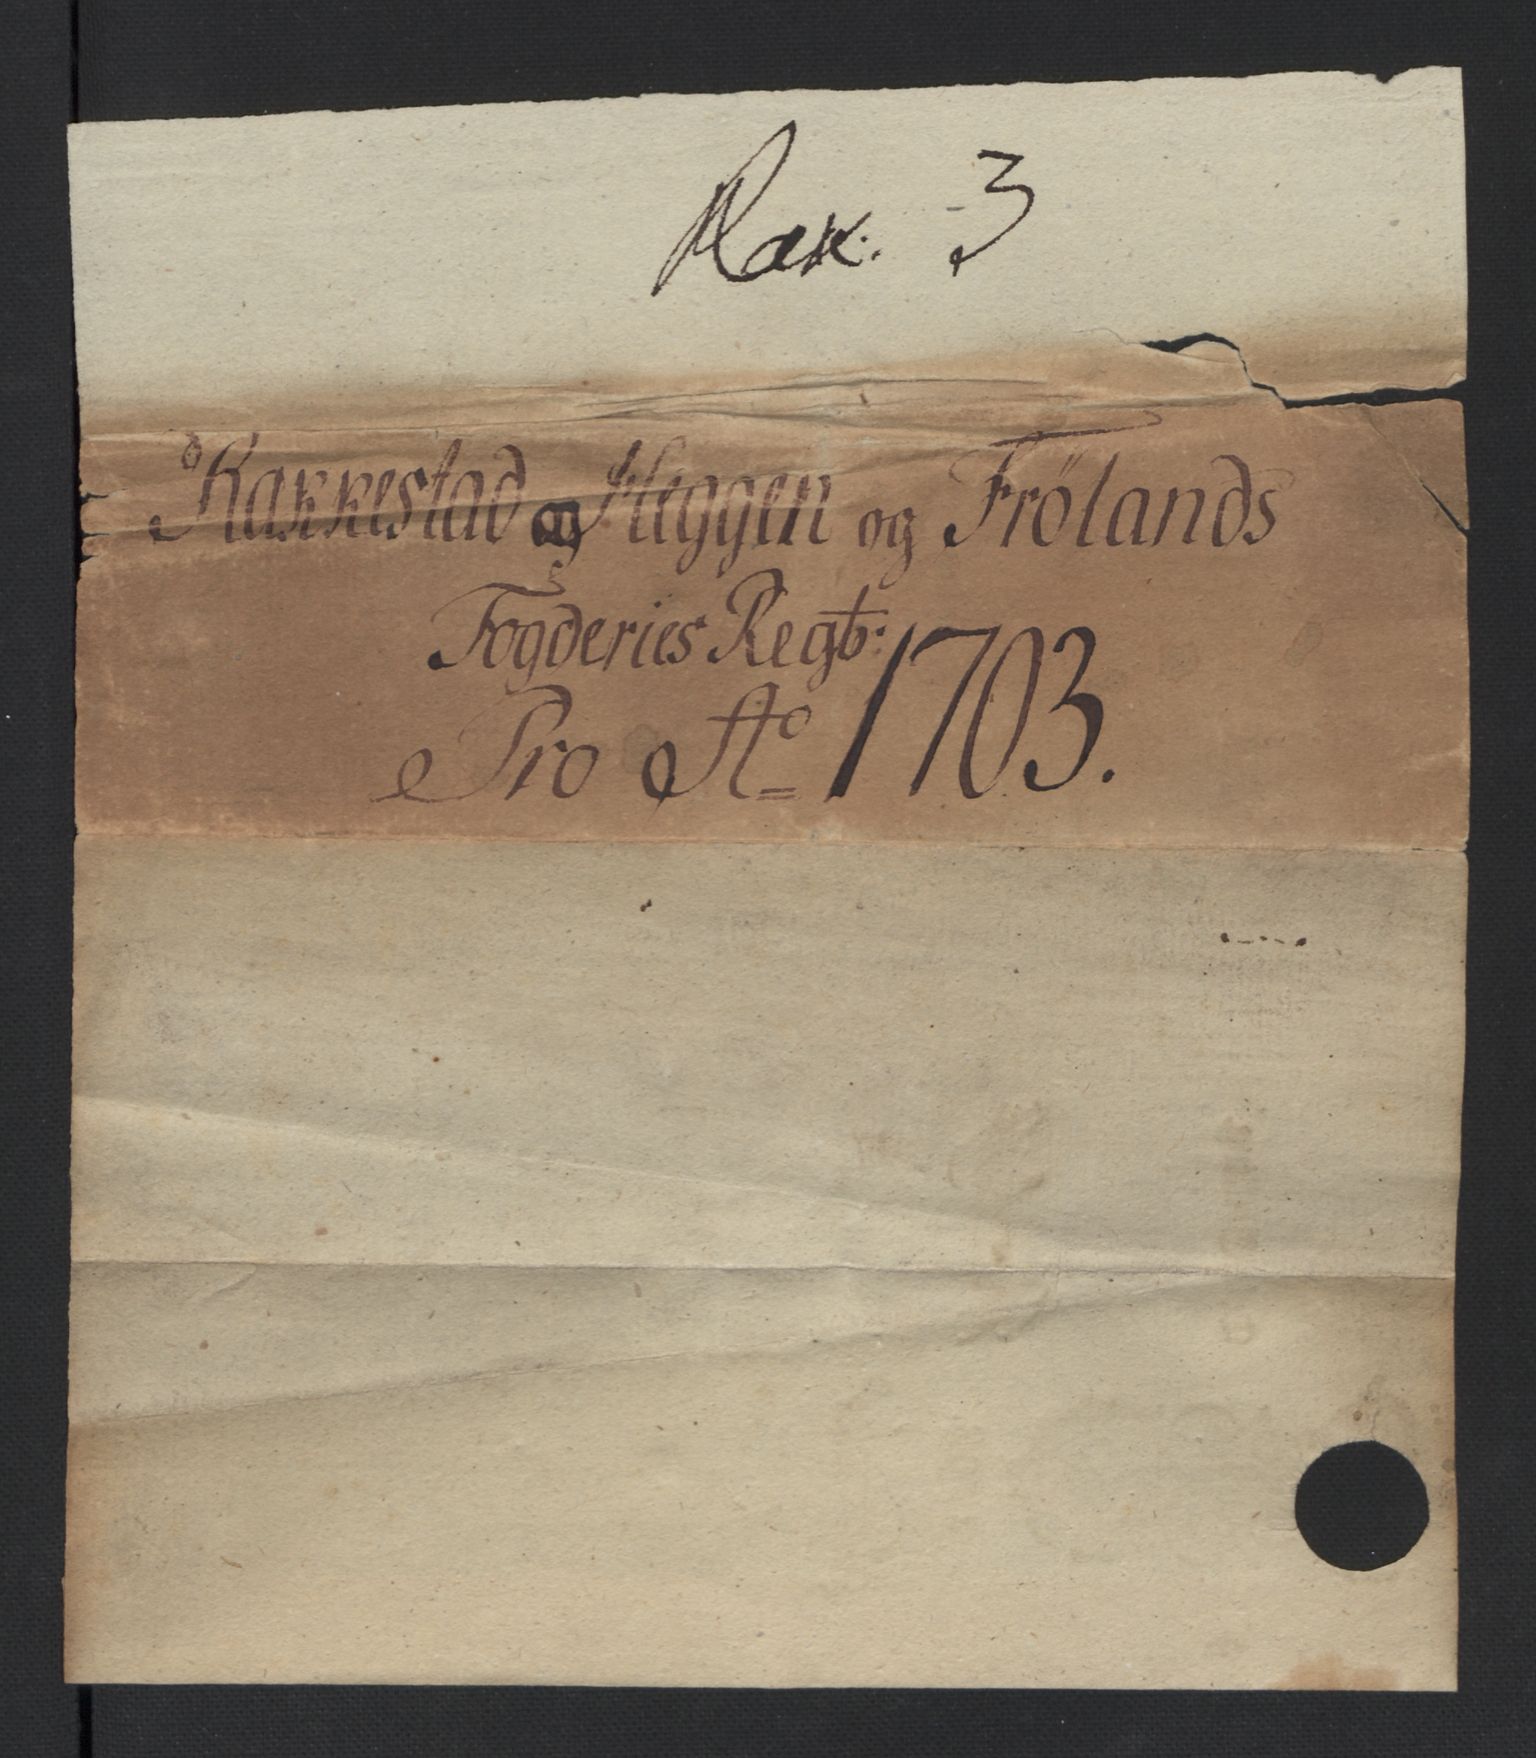 Rak. 3
Rakkestad og Heggen og Frölands
Fogderies Regb:
Pro Ao 1703.